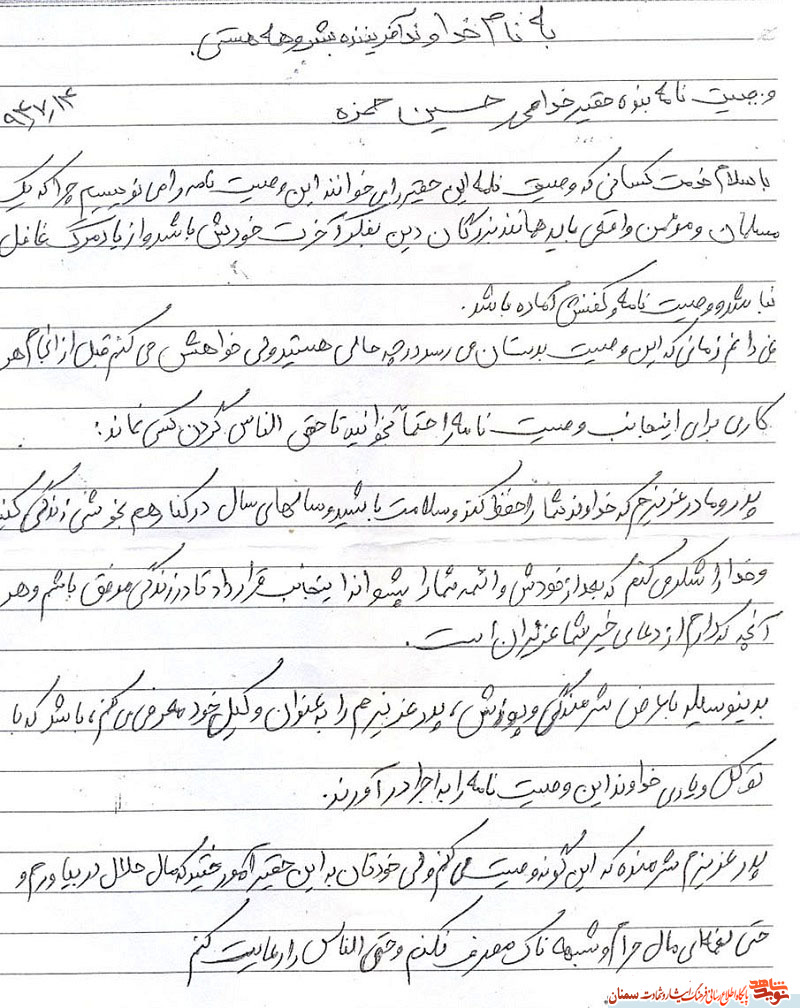 به نام خداوند آفریننده بشر و همه هستی.
وصیت نامه بنده حقیر خدا حسین حمزه ۹۴,۷,۱۴
با سلام خدمت کسانی که وصیت نامه این حقیر را می خوانند این وصیت نامه را می نویسم چرا که یک
مسلمان و مؤمن واقعی باید همانند بزرگان دین بفکر آخرت خودش باشد و از یاد مرگ غافل
نباشد و وصیت نامه و کفنش آماده باشد.
نمی دانم زمانی که این وصیت بدستان می رسد در چه حالی هستید ولی خواهش می کنم قبل از انجام هر
کاری برای اینجانب وصیت نامه را حتماً بخوانید تا حقی الناس گردن کسی نماند:
پدر و مادر عزیزم که خداوند شما را حفظ کند و سلامت باشید و سالهای سال در کنار هم بخوشی زندگی کنید
و خدا را شکر می کنم که بعد از خودش و ائمه شما را پشتواند اینجانب قرار داد تا در زندگی موفق باشم و هر
آنچه که دارم از دعای خیر شما عزیزان است.
بدینوسیله با عرض شرمندگی و پوزش، پدر عزیزم را به عنوان وکیل خود معرفی می کنم، باشد که با
توکل و یاری خداوند این وصیت نامه را به اجرا در آورند.
پدر عزیزم شرمنده که این گونه وصیت می کنم ولی خودتان به این حقیر آموختید که مال حلال در بیاورم و
حتی لقمه ای مال حرام و شبهه ناک مصرف نکنم و حق الناس را رعایت کنم
نوید شاهد پایگاه اطلاع رسانی فرهنگ ایثار و شهادت سمنان